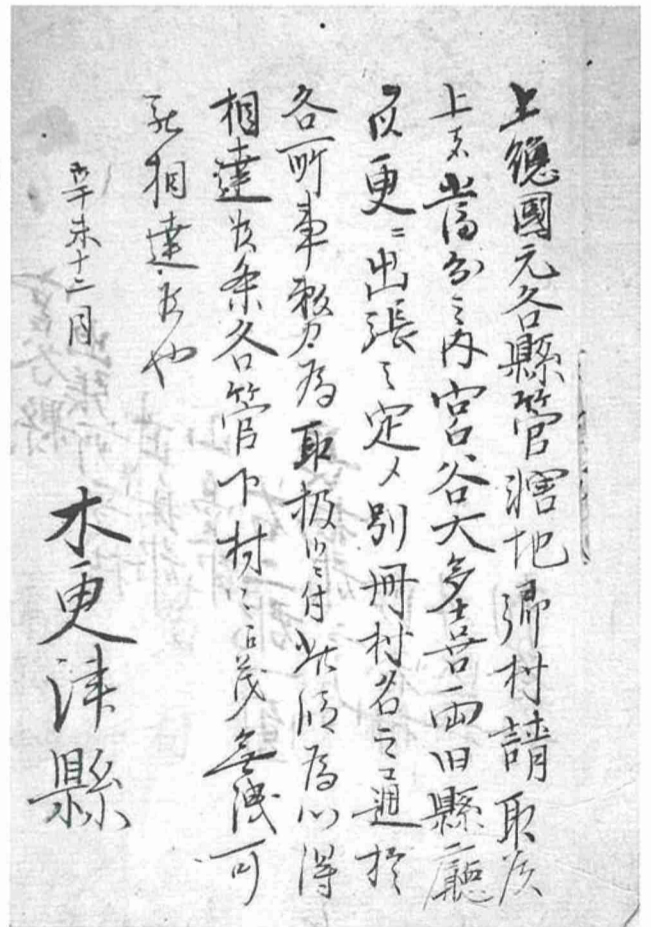 上總國元各縣管轄地郷村請取候
上者当分之内宮谷大多喜両旧縣廳
以更ニ出張之定メ別冊村名之通於
各所事務為取扱候ニ付此段為心得
相達候条各管下村々江茂無洩可
相達候也
辛未十二月
木更津縣